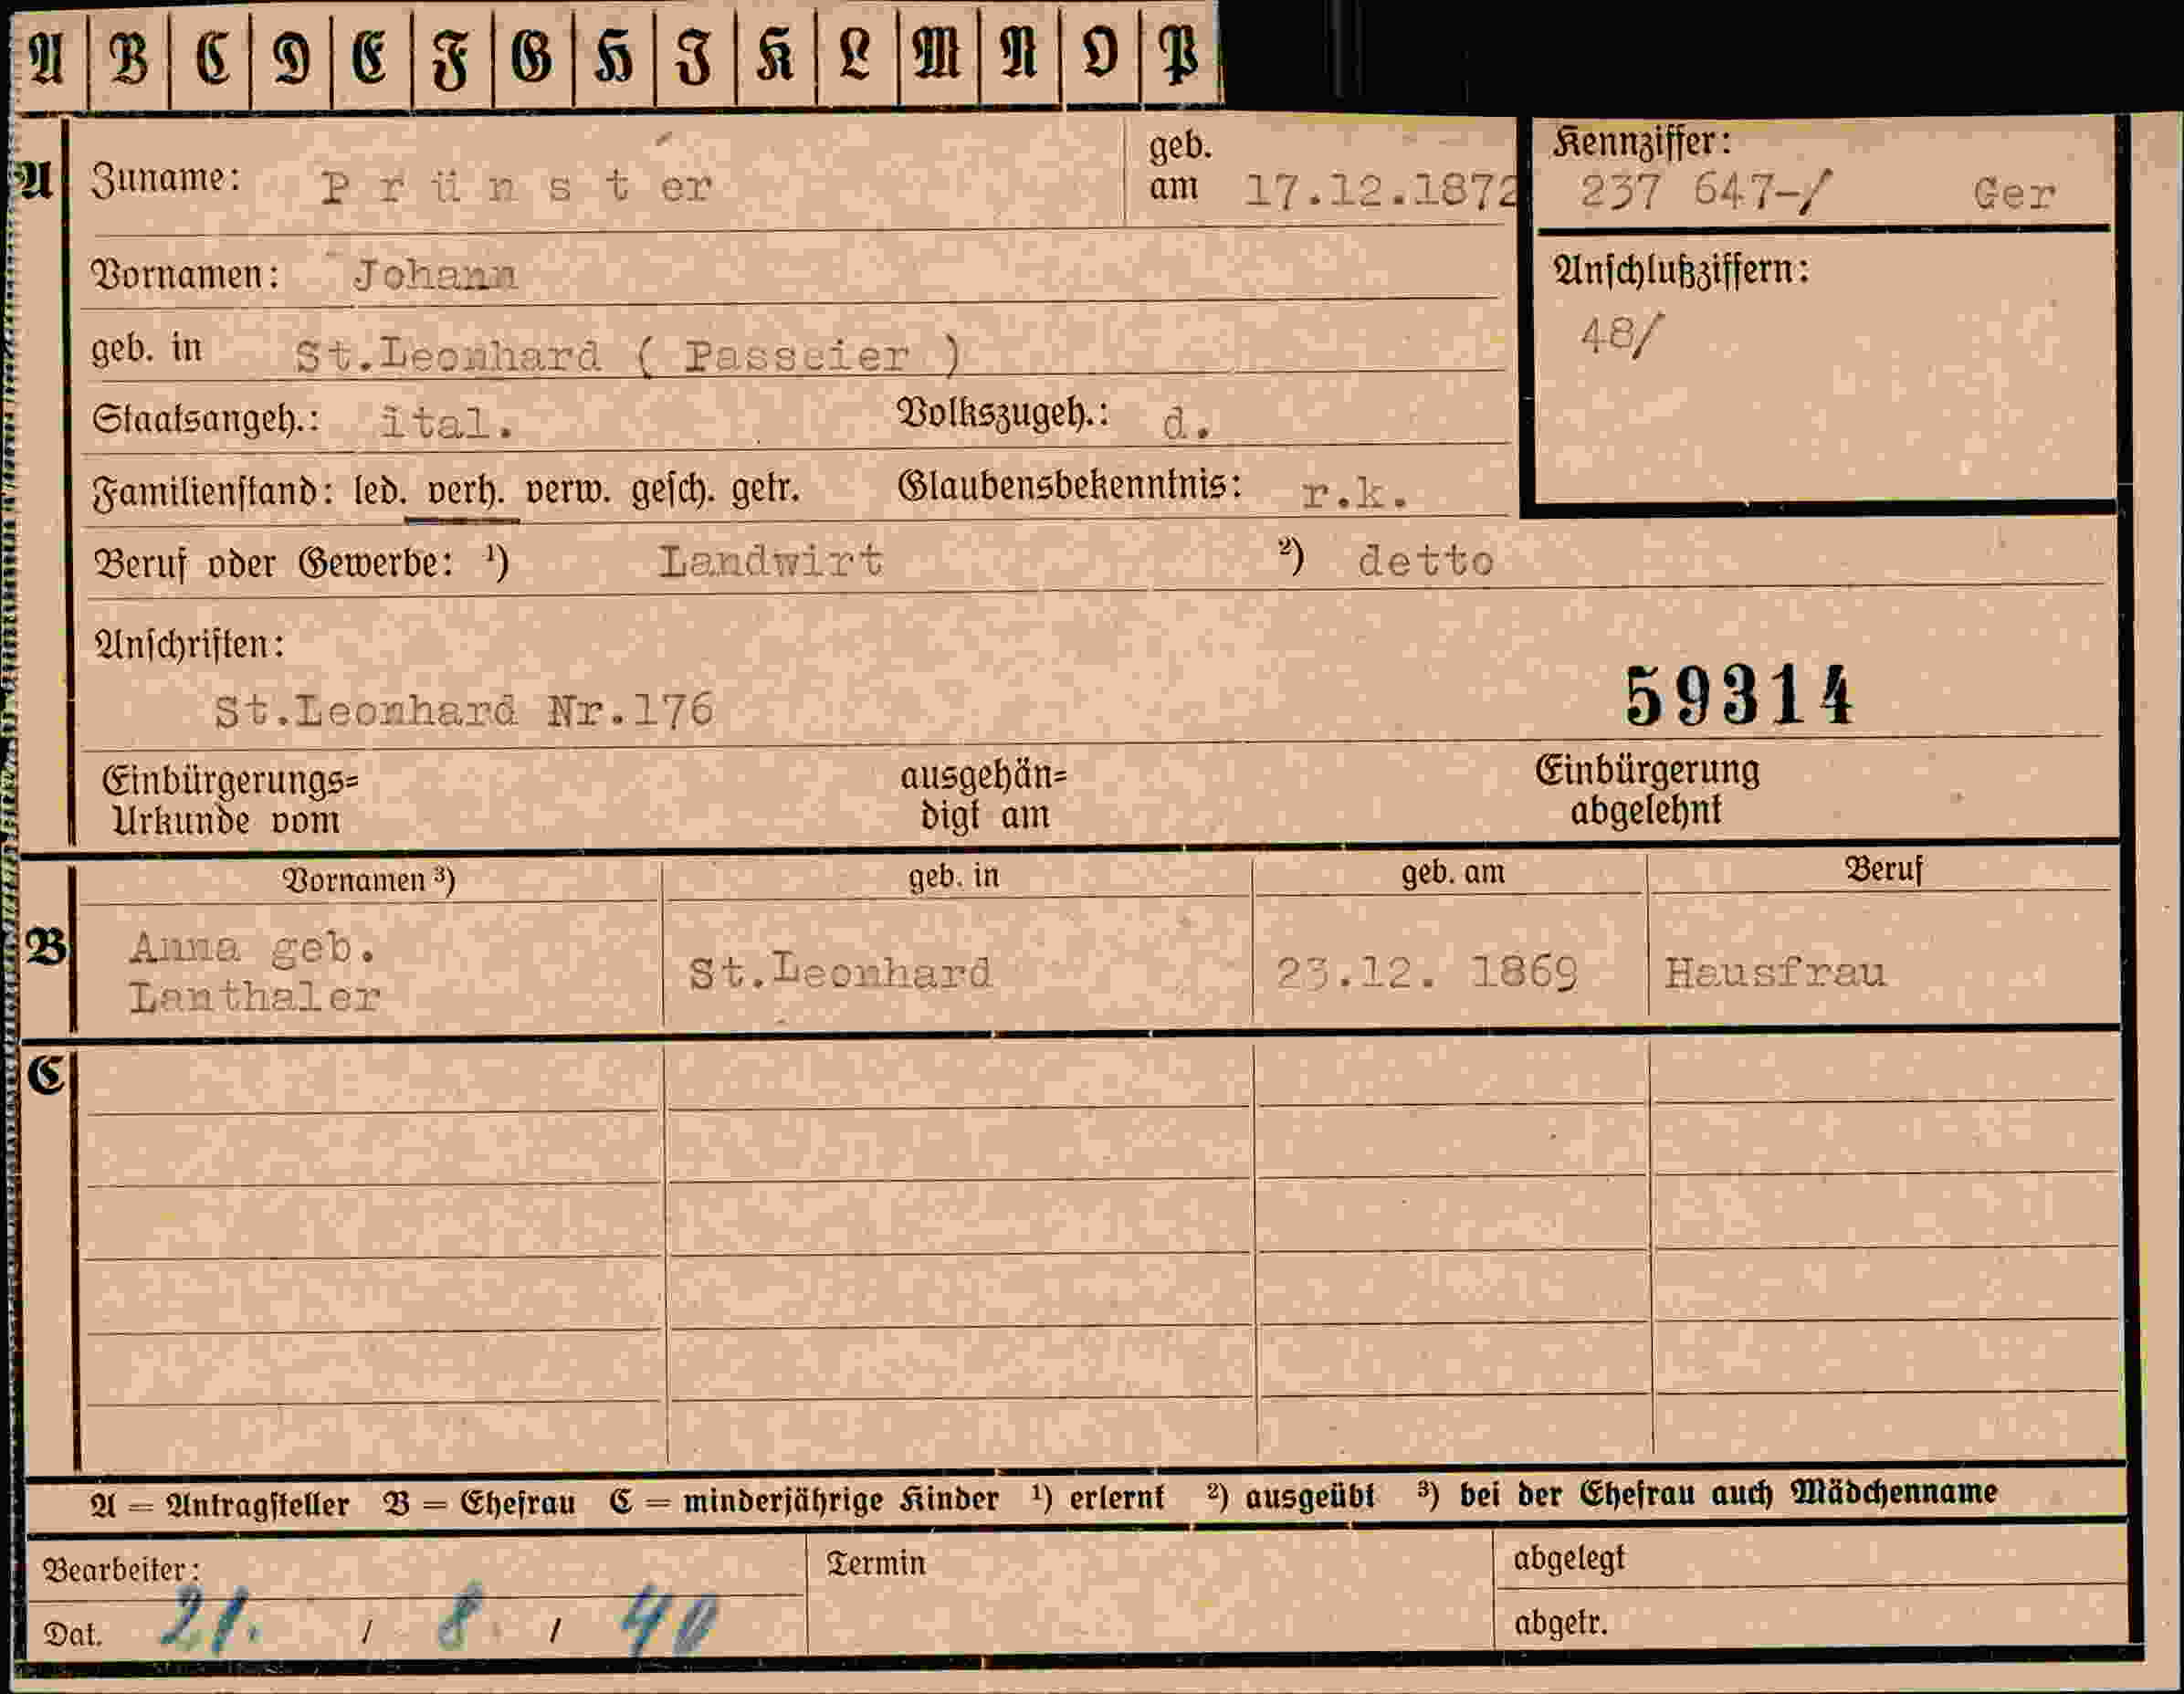 A B C D E F G H I K L M N O P
A Zuname: Prünster geb. am 17.12.1872 Kennziffer: 237 647-/ Ger
Vornamen: Johann Anschlußziffern:
geb. in St.Leonhard ( Passeier ) 48/
Staatsangeh.: ital. Volkszugeh.: d.
Familienstand: led. verh. verw. gesch. getr. Glaubensbekenntnis: r.k.
Beruf oder Gewerbe: ¹) Landwirt ²) detto
Anschriften:
St.Leonhard Nr.176 59314
Einbürgerungs= ausgehän= Einbürgerung
Urkunde vom digt am abgelehnt
Vornamen ³) geb. in geb. am Beruf
B Anna geb.
Lanthaler St.Leonhard 23.12. 1869 Hausfrau
C
A = Antragsteller B = Ehefrau C = minderjährige Kinder ¹) erlernt ²) ausgeübt ³) bei der Ehefrau auch Mädchenname
Bearbeiter: Termin abgelegt
Dat. 21. / 8 / 40 abgetr.